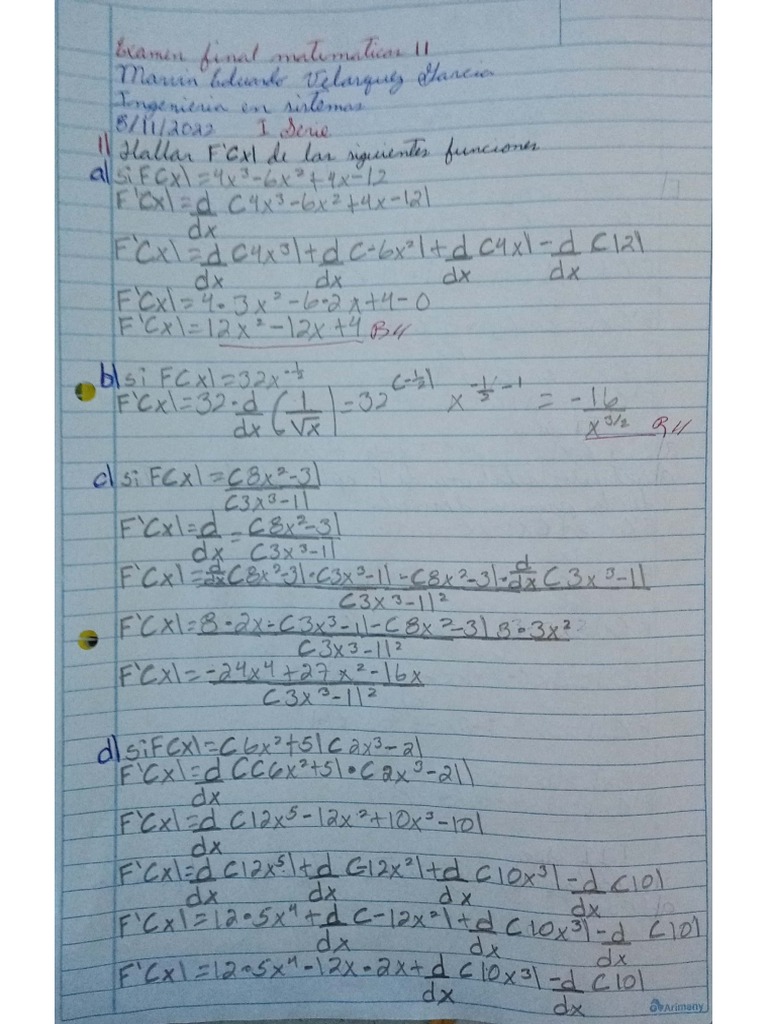 Examen final matematicas 11
Marvin Eduardo Velasquez Garcia
Ingenieria en sistemas
5/11/2022 I Serie
1) Hallar F'(x) de las siguientes funciones
a) si F(x)=4x³-6x²+4x-12
F'(x)=d/dx (4x³-6x²+4x-12)
F'(x)=d/dx (4x³)+d/dx (-6x²)+d/dx (4x)-d/dx (12)
F'(x)=4·3x²-6·2x+4-0
F'(x)=12x²-12x+4 R//
b) si F(x)=32x^-½
F'(x)=32·d/dx (1/√x)=32^(-½) x^-½-1 = -16/x^3/2 R//
c) si F(x)=(8x²-3)/(3x³-1)
F'(x)=d/dx=(8x²-3)/(3x³-1)
F'(x)=d/dx(8x²-3)·(3x³-1)-(8x²-3)·d/dx(3x³-1)/(3x³-1)²
F'(x)=8·2x=(3x³-1)-(8x²-3)3·3x²/(3x³-1)²
F'(x)=-24x⁴+27x²-16x/(3x³-1)²
d) si F(x)=(6x²+5)(2x³-2)
F'(x)=d/dx ((6x²+5)·(2x³-2))
F'(x)=d/dx (12x⁵-12x²+10x³-10)
F'(x)=d/dx (12x⁵)+d/dx (-12x²)+d/dx (10x³)-d/dx (10)
F'(x)=12·5x⁴+d/dx (-12x²)+d/dx (10x³)-d/dx (10)
F'(x)=12·5x⁴-12x·2x+d/dx (10x³)-d/dx (10)
Arimany